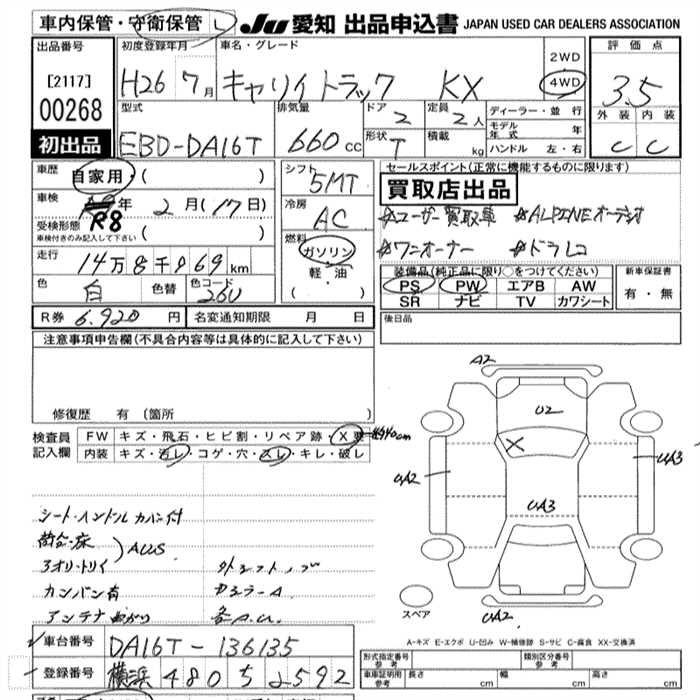 車内保管・守衛保管 JU 愛知 出品申込書 JAPAN USED CAR DEALERS ASSOCIATION
出品番号 初度登録年月 車名・グレード 2WD 評価点
[2117] H26 7月 キャリイトラック KX 4WD 3.5
00268 型式 排気量 ドア 2 定員 2人 ディーラー・並行 外装 内装
初出品 EBD-DA16T 660cc 形状 T 積載 kg モデル年式 年 C C
ハンドル 左・右
車歴 自家用・( ) シフト 5MT セールスポイント(正常に機能するものに限ります)
車検 R8年 2月(17日) 冷房 AC 買取店出品
受検形態 ( ) #ユーザー買取車 #ALPINEオーディオ
車検付きのみ記入して下さい 燃料 ガソリン #ワンオーナー #ドラレコ
走行 14万8千969km 軽・油 装備品(純正品に限り○をつけてください) 新車保証書
色 白 色替 色コード 26U ( ) PS PW エアB AW 有・無
SR ナビ TV カワシート
R券 6.920円 名変通知期限 月 日 後日品
注意事項申告欄(不具合内容等は具体的に記入して下さい)
修復歴 有 〔箇所
検査員 FW キズ・飛石・ヒビ割・リペア跡・X要
記入欄 内装 キズ・汚レ・コゲ・穴・スレ・キレ・破レ
A2
U2
X
UA2 UA3
UA3
シート・ハンドルカバー付
荷台・床
AUS
3オリ・トリイ
カンバン有
アンテナ曲がり
スペア UA2
A-キズ E-エクボ U-凹み W-補修跡 S-サビ C-腐食 XX-交換済
車台番号 DA16T-136135 型式指定番号 参考 類別区分番号 参考
登録番号 横浜 480 そ 2592 車庫証明用 参考 長さ cm 幅 cm 高さ cm